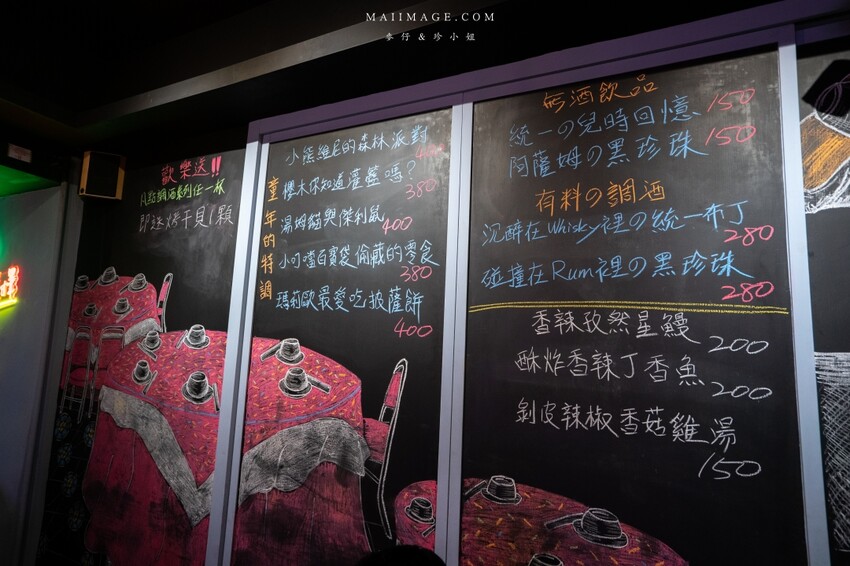 MAIIMAGE.COM
麥仔&珍小妞
歡樂送!!
八點調酒系列任一杯
即送烤干貝1顆
童年的特調
小熊維尼的森林派對
櫻木你知道灌籃嗎?
380
湯姆貓與傑利鼠
400
小叮噹百寶袋偷藏的零食
380
瑪莉歐最愛吃披薩餅
400
無酒飲品
統一の兒時回憶 150
阿薩姆の黑珍珠 150
有料の調酒
沉醉在Whisky裡の統一布丁
280
碰撞在Rum裡の黑珍珠
280
香辣孜然星鰻
200
酥炸香辣丁香魚
200
剝皮辣椒香菇雞湯
150